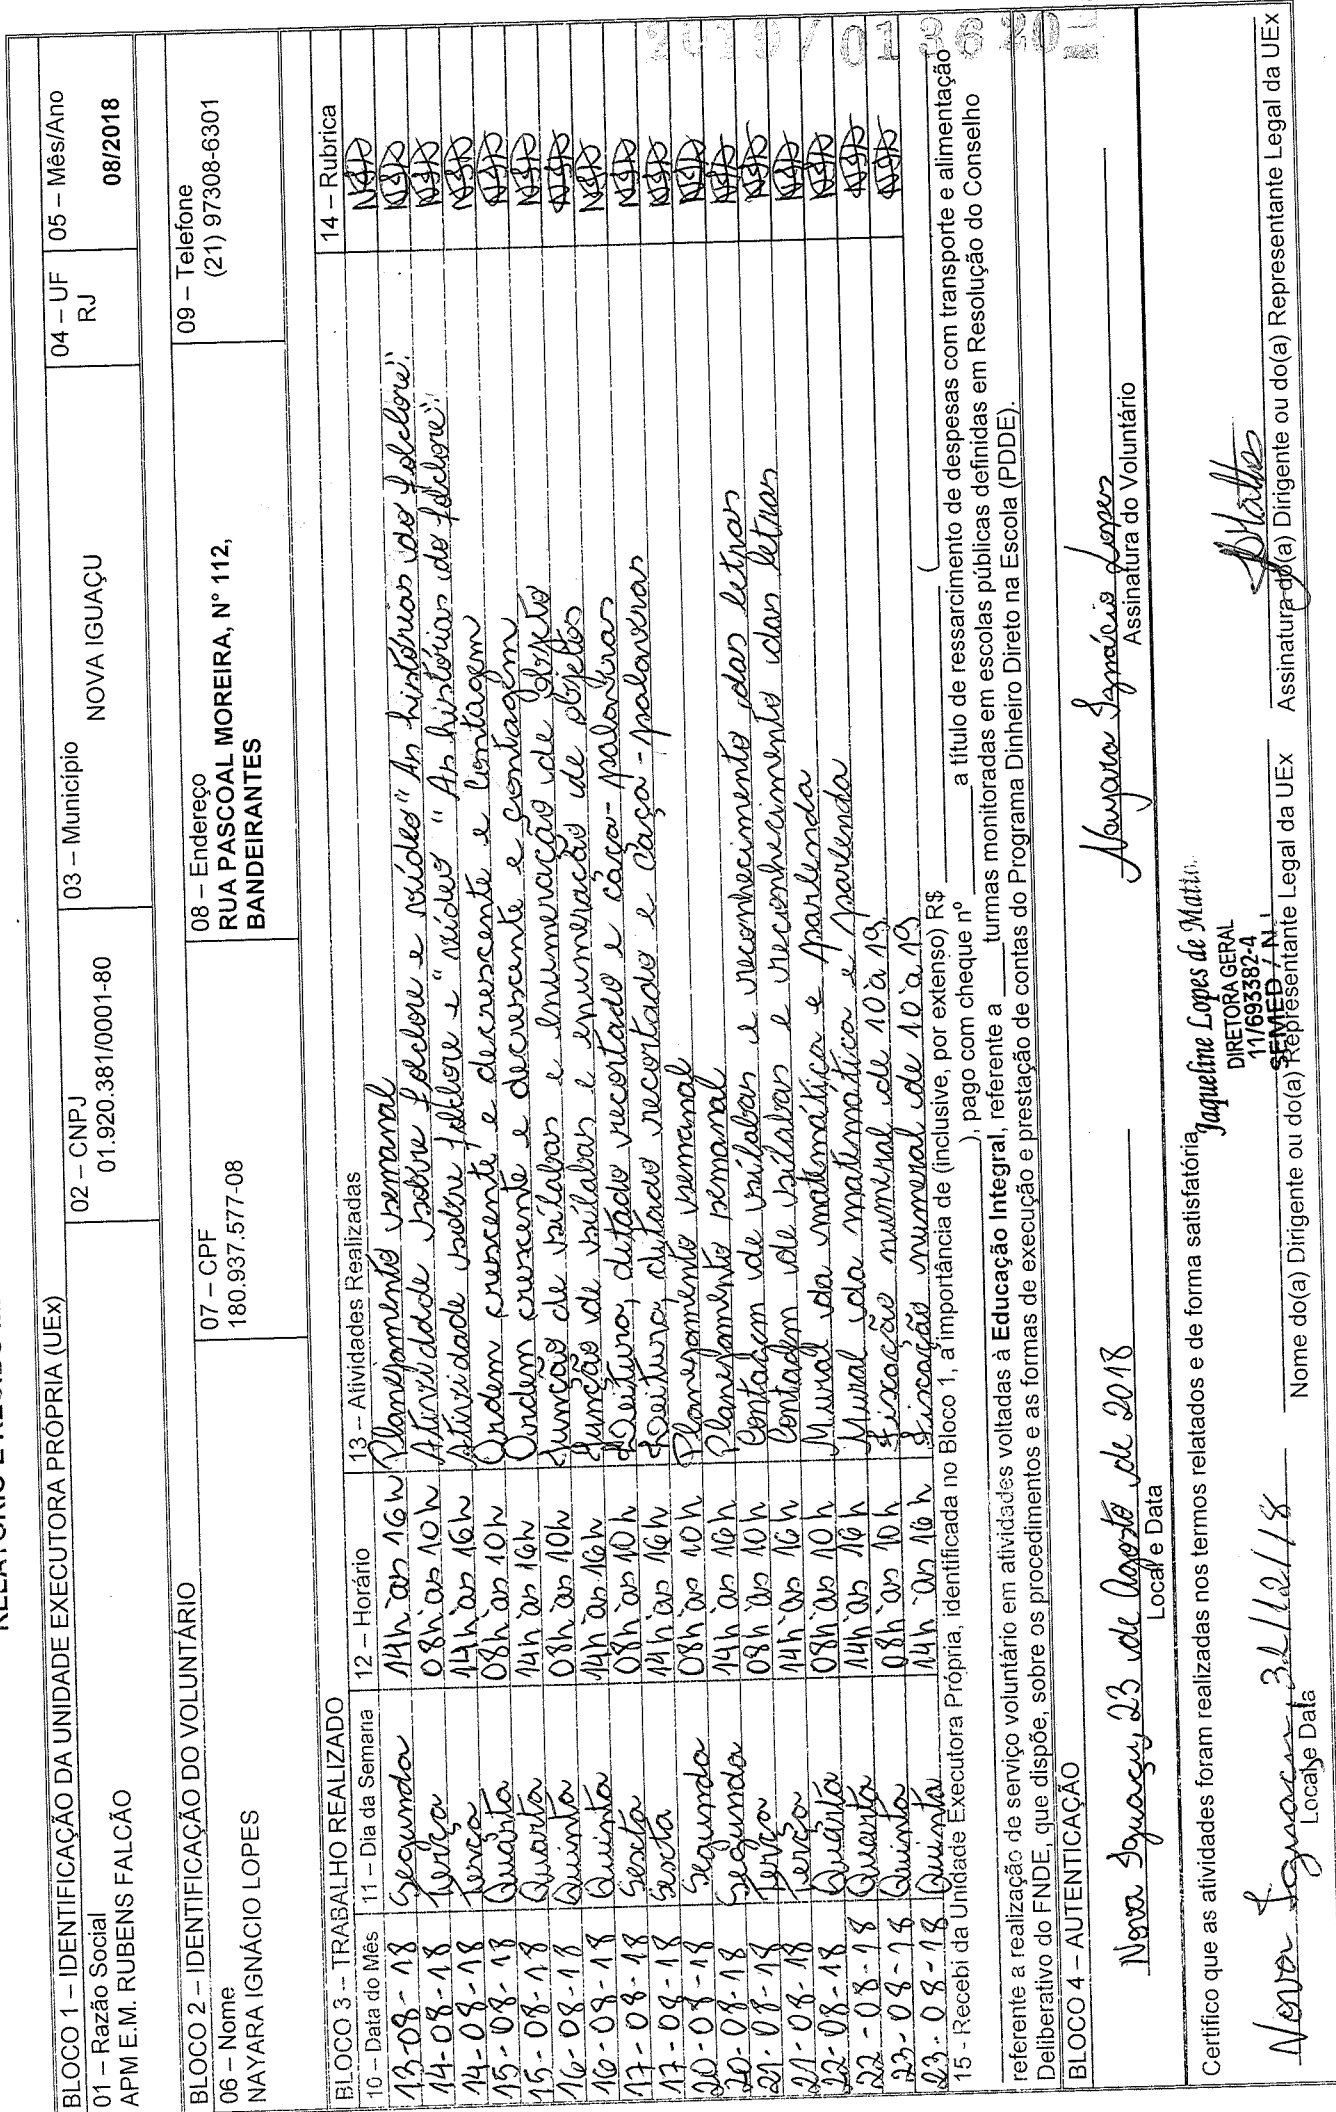 BLOCO 1 – IDENTIFICAÇÃO DA UNIDADE EXECUTORA PRÓPRIA (UEx)
01 – Razão Social
APM E.M. RUBENS FALCÃO
02 – CNPJ
01.920.381/0001-80
03 – Município
NOVA IGUAÇU
04 – UF
RJ
05 – Mês/Ano
08/2018
BLOCO 2 – IDENTIFICAÇÃO DO VOLUNTÁRIO
06 – Nome
NAYARA IGNÁCIO LOPES
07 – CPF
180.937.577-08
08 – Endereço
RUA PASCOAL MOREIRA, N° 112,
BANDEIRANTES
09 – Telefone
(21) 97308-6301
BLOCO 3 – TRABALHO REALIZADO
10 – Data do Mês 11 – Dia da Semana 12 – Horário 13 – Atividades Realizadas 14 – Rubrica
13-08-18 Segunda 14h às 16h Planejamento semanal
14-08-18 Terça 08h às 10h Atividade sobre folclore e vídeo "As histórias do folclore".
14-08-18 Terça 14h às 16h Atividade sobre folclore e "vídeo "As histórias do folclore".
15-08-18 Quarta 08h às 10h Ordem crescente e decrescente e contagem
15-08-18 Quarta 14h às 16h Ordem crescente e decrescente e contagem
16-08-18 Quinta 08h às 10h Junção de sílabas e enumeração de objeto
16-08-18 Quinta 14h às 16h Junção de sílabas e enumeração de objetos
17-08-18 Sexta 08h às 10h Leitura, ditado recortado e caça-palavras
17-08-18 Sexta 14h às 16h Leitura, ditado recortado e caça-palavras
20-08-18 Segunda 08h às 10h Planejamento semanal
20-08-18 Segunda 14h às 16h Planejamento semanal
21-08-18 Terça 08h às 10h Contagem de sílabas e reconhecimento das letras
21-08-18 Terça 14h às 16h Contagem de sílabas e reconhecimento das letras
22-08-18 Quarta 08h às 10h Mural da matemática e parlenda
22-08-18 Quarta 14h às 16h Mural da matemática e parlenda
23-08-18 Quinta 08h às 10h Fixação numeral de 10 a 19
23-08-18 Quinta 14h às 16h Fixação numeral de 10 a 19
15 - Recebi da Unidade Executora Própria, identificada no Bloco 1, a importância de (inclusive, por extenso) R$ ________ a título de ressarcimento de despesas com transporte e alimentação
( ________ ), pago com cheque nº ________
referente a realização de serviço voluntário em atividades voltadas à Educação Integral, referente a ____ turmas monitoradas em escolas públicas definidas em Resolução do Conselho
Deliberativo do FNDE, que dispõe, sobre os procedimentos e as formas de execução e prestação de contas do Programa Dinheiro Direto na Escola (PDDE).
BLOCO 4 – AUTENTICAÇÃO
Nova Iguaçu, 23 de Agosto de 2018
Local e Data
Nayara Ignácio Lopes
Assinatura do Voluntário
Certifico que as atividades foram realizadas nos termos relatados e de forma satisfatória.
Jaqueline Lopes de Mattos
DIRETORA GERAL
11/693382-4
SEMED / N.I
Nova Iguaçu, 31/12/18
Local e Data
Nome do(a) Dirigente ou do(a) Representante Legal da UEx
Assinatura do(a) Dirigente ou do(a) Representante Legal da UEx